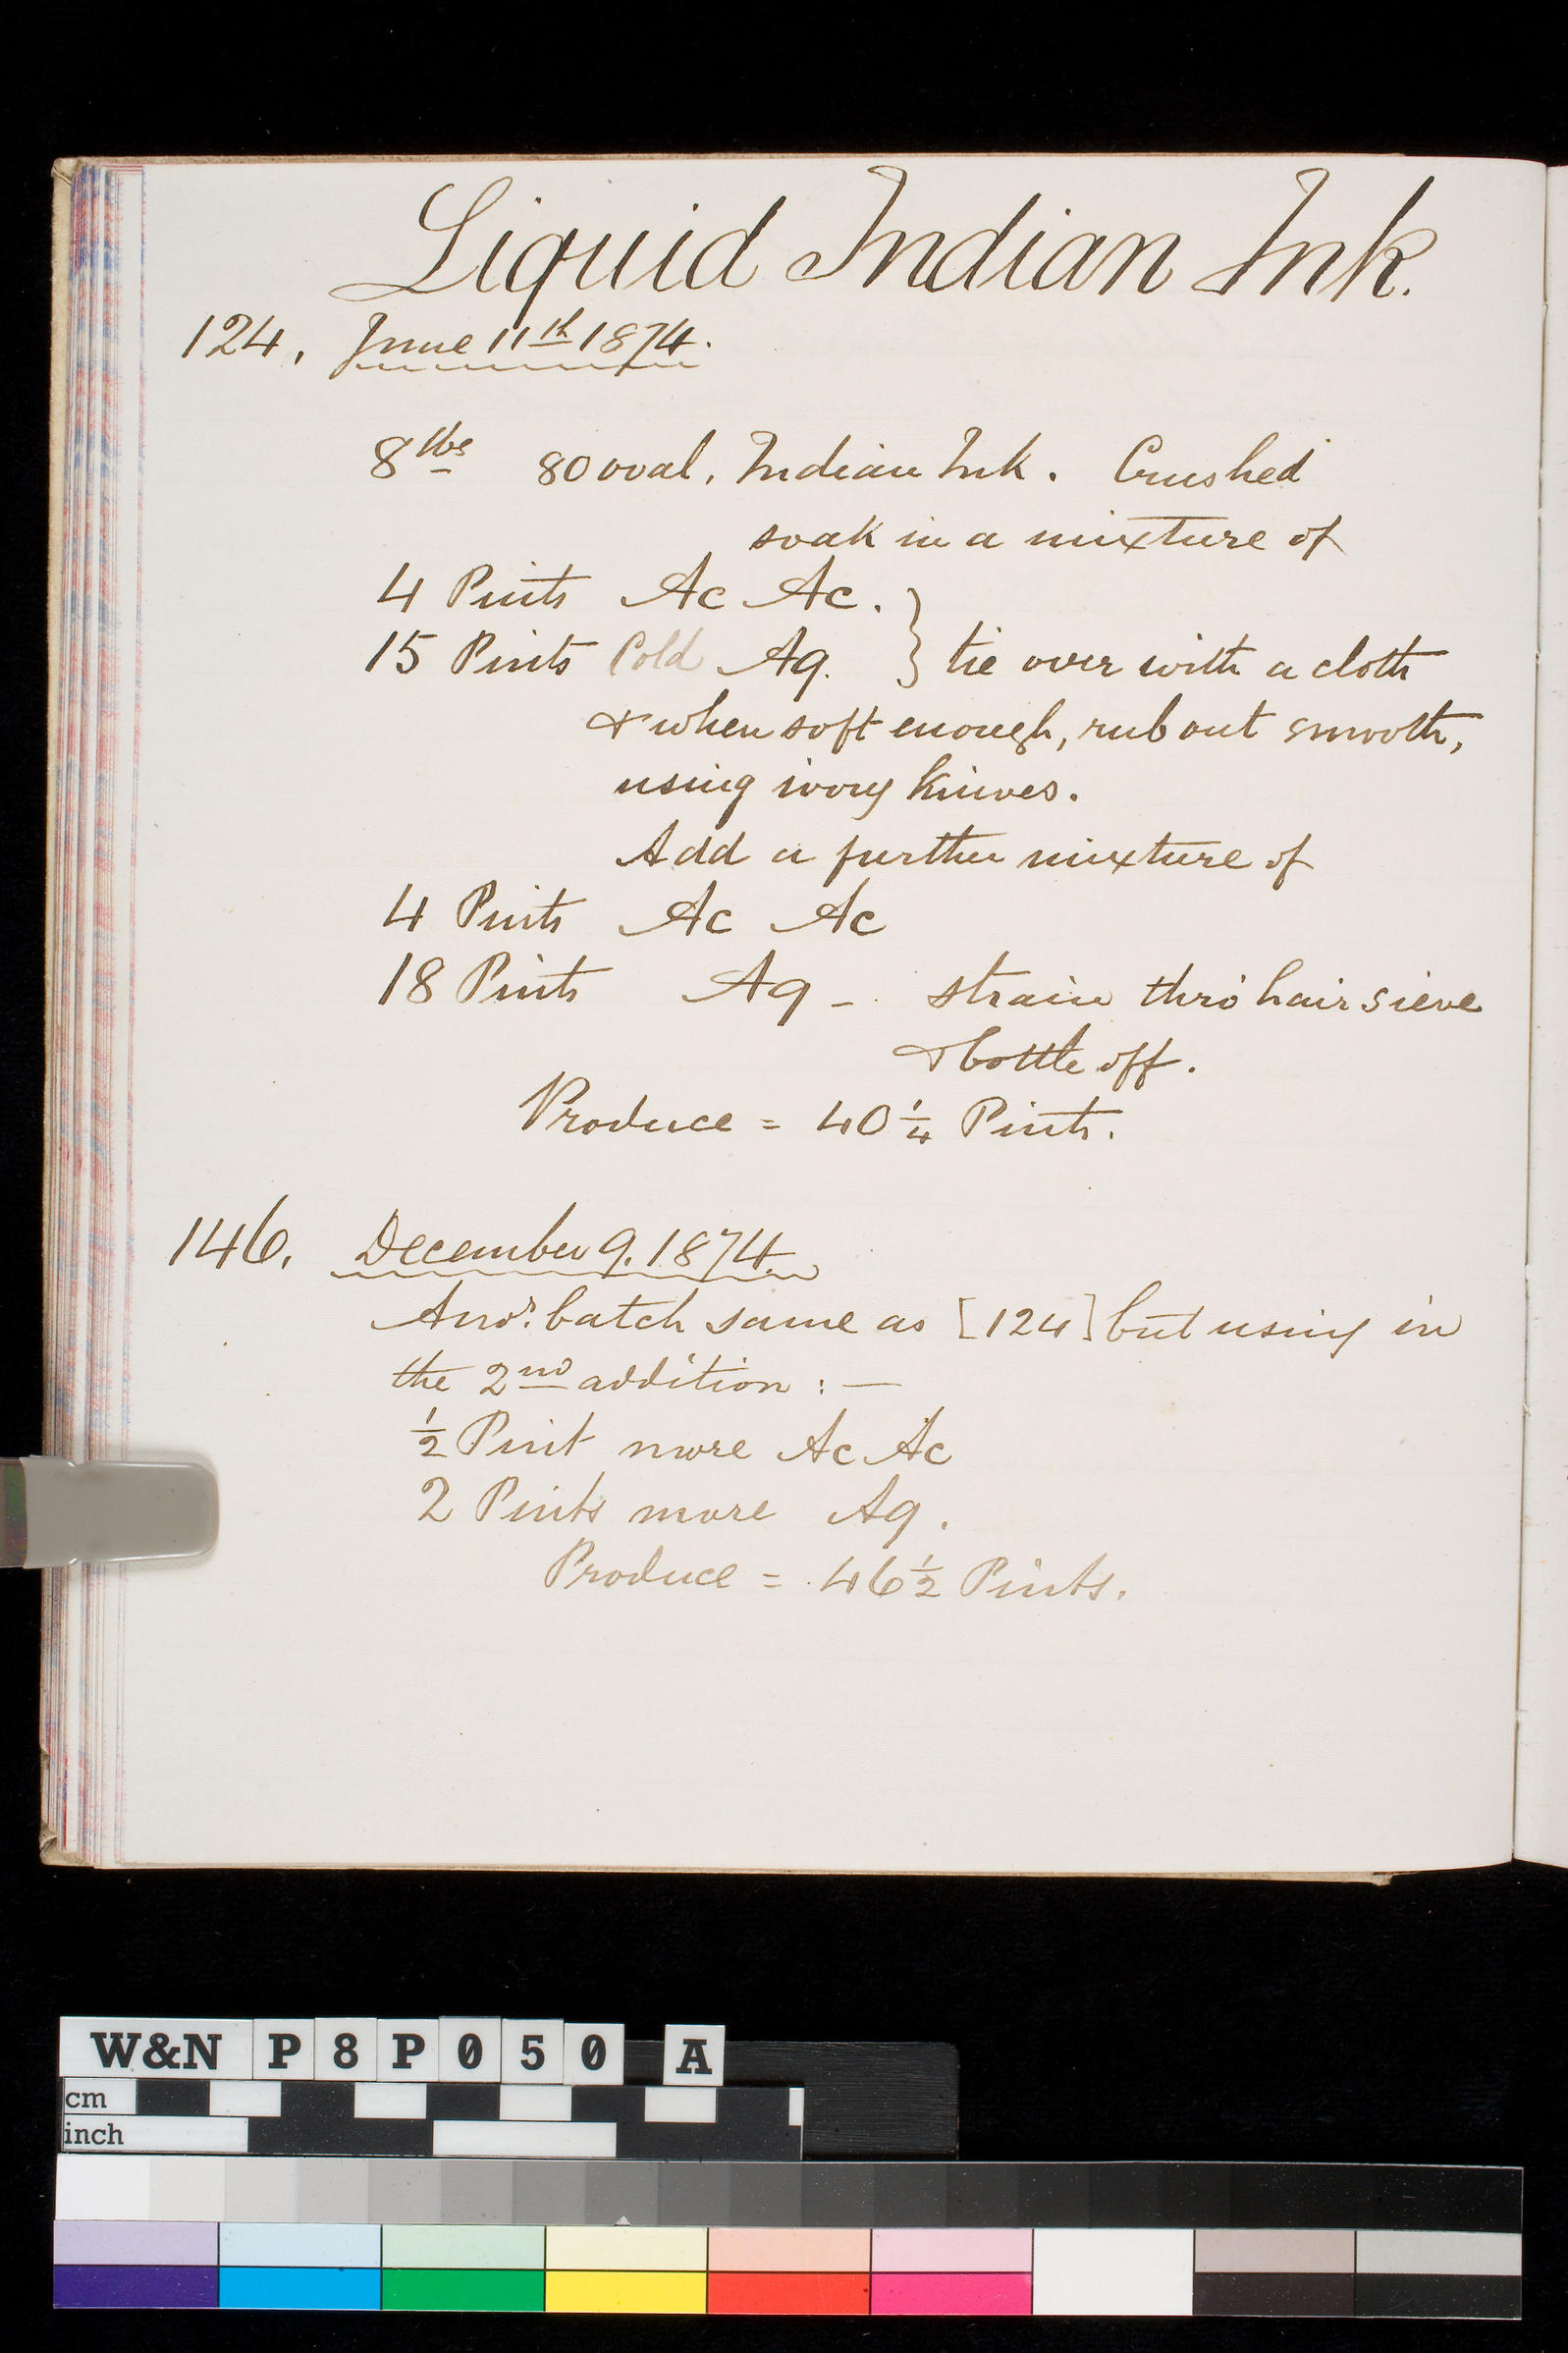 Liquid Indian Ink.
124. June 11th 1874.
8 lbs 80 oval. Indian Ink. Crushed
soak in a mixture of
4 Pints Ac Ac. }
15 Pints Cold Aq. } tie over with a cloth
& when soft enough, rub out smooth,
using ivory knives.
Add a further mixture of
4 Pints Ac Ac
18 Pints Aq - strain thro' hair sieve
& bottle off.
Produce = 40 1/4 Pints.
146. December 9. 1874.
Anor. batch same as [124] but using in
the 2nd addition : —
1/2 Pint more Ac Ac
2 Pints more Aq.
Produce = 46 1/2 Pints.
W&N P8P050 A
cm
inch